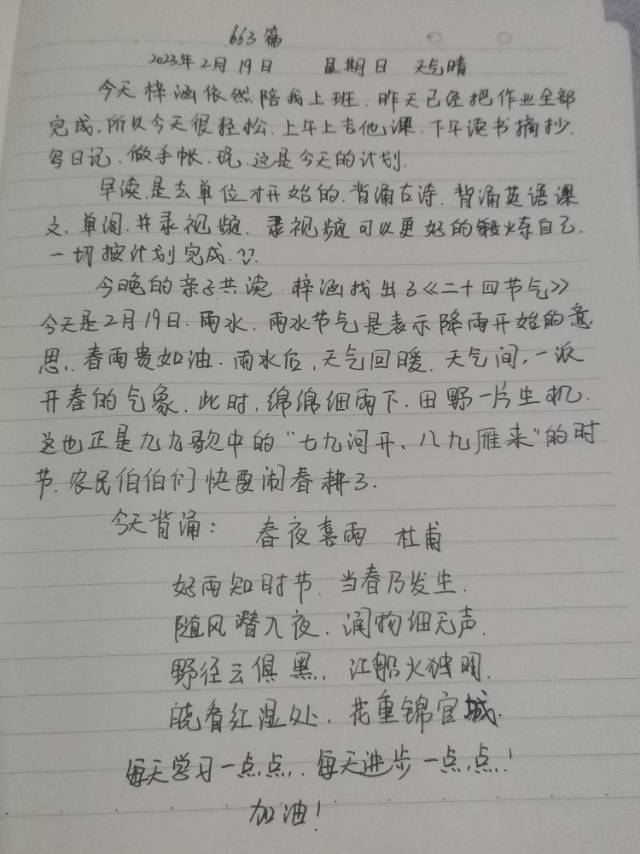 663篇
2023年2月19日 星期日 天气晴
今天梓涵依然陪我上班.昨天已经把作业全部
完成,所以今天很轻松.上午上吉他课.下午读书摘抄.
写日记.做手帐.玩.这是今天的计划.
早读.是去单位才开始的.背诵古诗.背诵英语课
文.单词.并录视频.录视频可以更好的锻炼自己.
一切按计划完成.??
今晚的亲子共读.梓涵找出了《二十四节气》
今天是2月19日.雨水.雨水节气是表示降雨开始的意
思.春雨贵如油.雨水后,天气回暖.天气间,一派
开春的气象.此时,绵绵细雨下.田野一片生机.
这也正是九九歌中的“七九河开、八九雁来”的时
节.农民伯伯们快要闹春耕了.
今天背诵: 春夜喜雨 杜甫
好雨知时节.当春乃发生.
随风潜入夜.润物细无声.
野径云俱黑,江船火独明.
晓看红湿处,花重锦官城.
每天学习一点点,每天进步一点点!
加油!